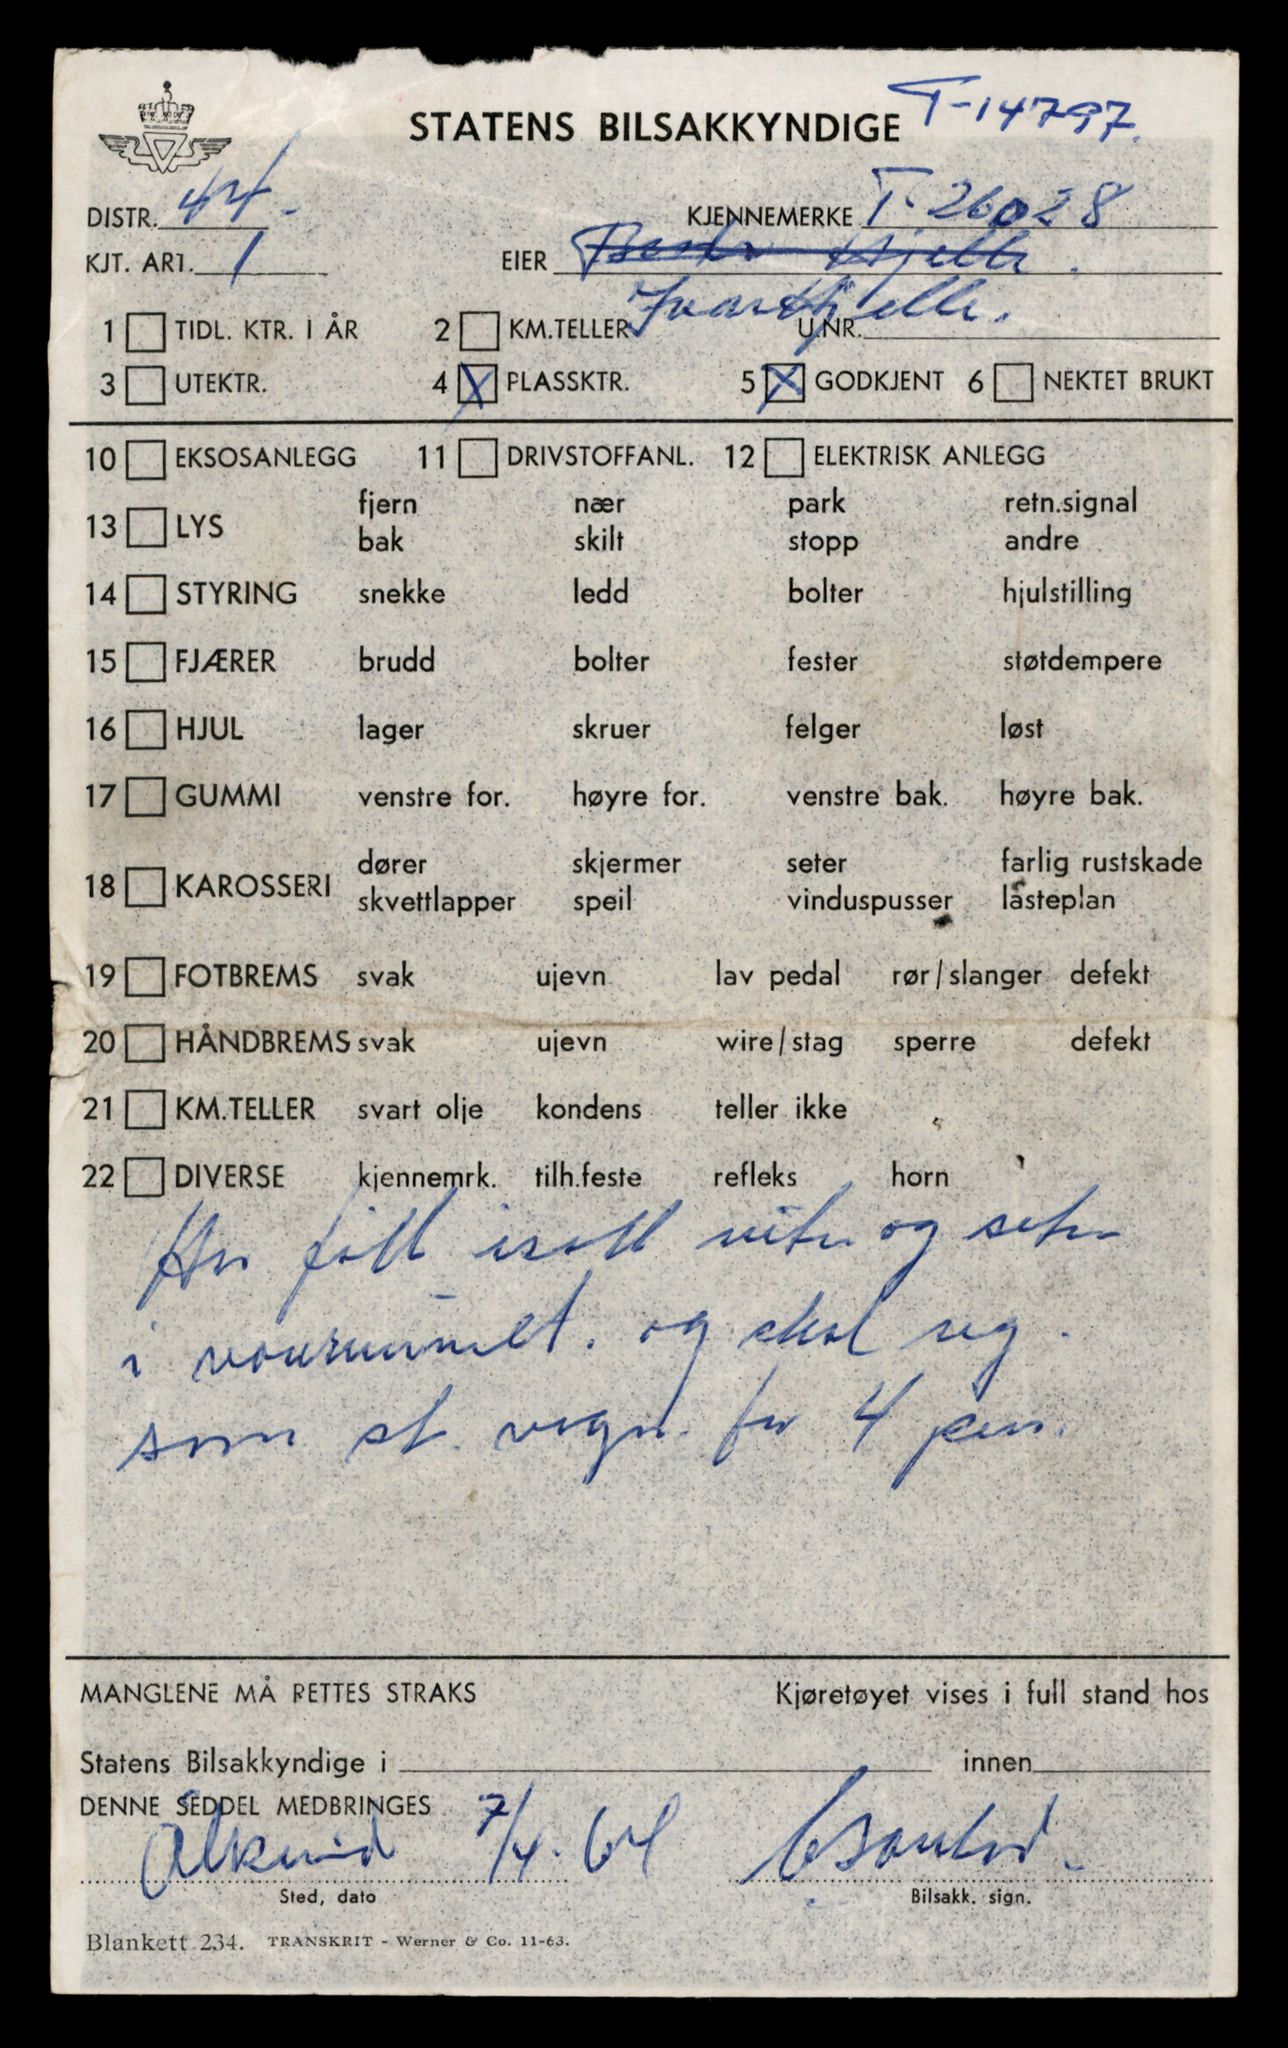 STATENS BILSAKKYNDIGE T-14797.
DISTR. 44- KJENNEMERKE T-26028
KJT. ART. 1 EIER Hjelle.
Ivar Hjelle.
1 TIDL. KTR. I ÅR 2 KM.TELLER U.NR.
3 UTEKTR. 4 X PLASSKTR. 5 X GODKJENT 6 NEKTET BRUKT
10 EKSOSANLEGG 11 DRIVSTOFFANL. 12 ELEKTRISK ANLEGG
fjern nær park retn.signal
13 LYS
bak skilt stopp andre
14 STYRING snekke ledd bolter hjulstilling
15 FJÆRER brudd bolter fester støtdempere
16 HJUL lager skruer felger løst
17 GUMMI venstre for. høyre for. venstre bak. høyre bak.
dører skjermer seter farlig rustskade
18 KAROSSERI
skvettlapper speil vinduspusser lasteplan
19 FOTBREMS svak ujevn lav pedal rør/slanger defekt
20 HÅNDBREMS svak ujevn wire/stag sperre defekt
21 KM.TELLER svart olje kondens teller ikke
22 DIVERSE kjennemrk. tilh.feste refleks horn
og
i varerummet. og skal reg.
som st. vogn. for 4 pers.
MANGLENE MÅ RETTES STRAKS Kjøretøyet vises i full stand hos
Statens Bilsakkyndige i innen
DENNE SEDDEL MEDBRINGES
7/4-64
Sted, dato Bilsakk. sign.
Blankett 234. TRANSKRIT - Werner & Co. 11-63.